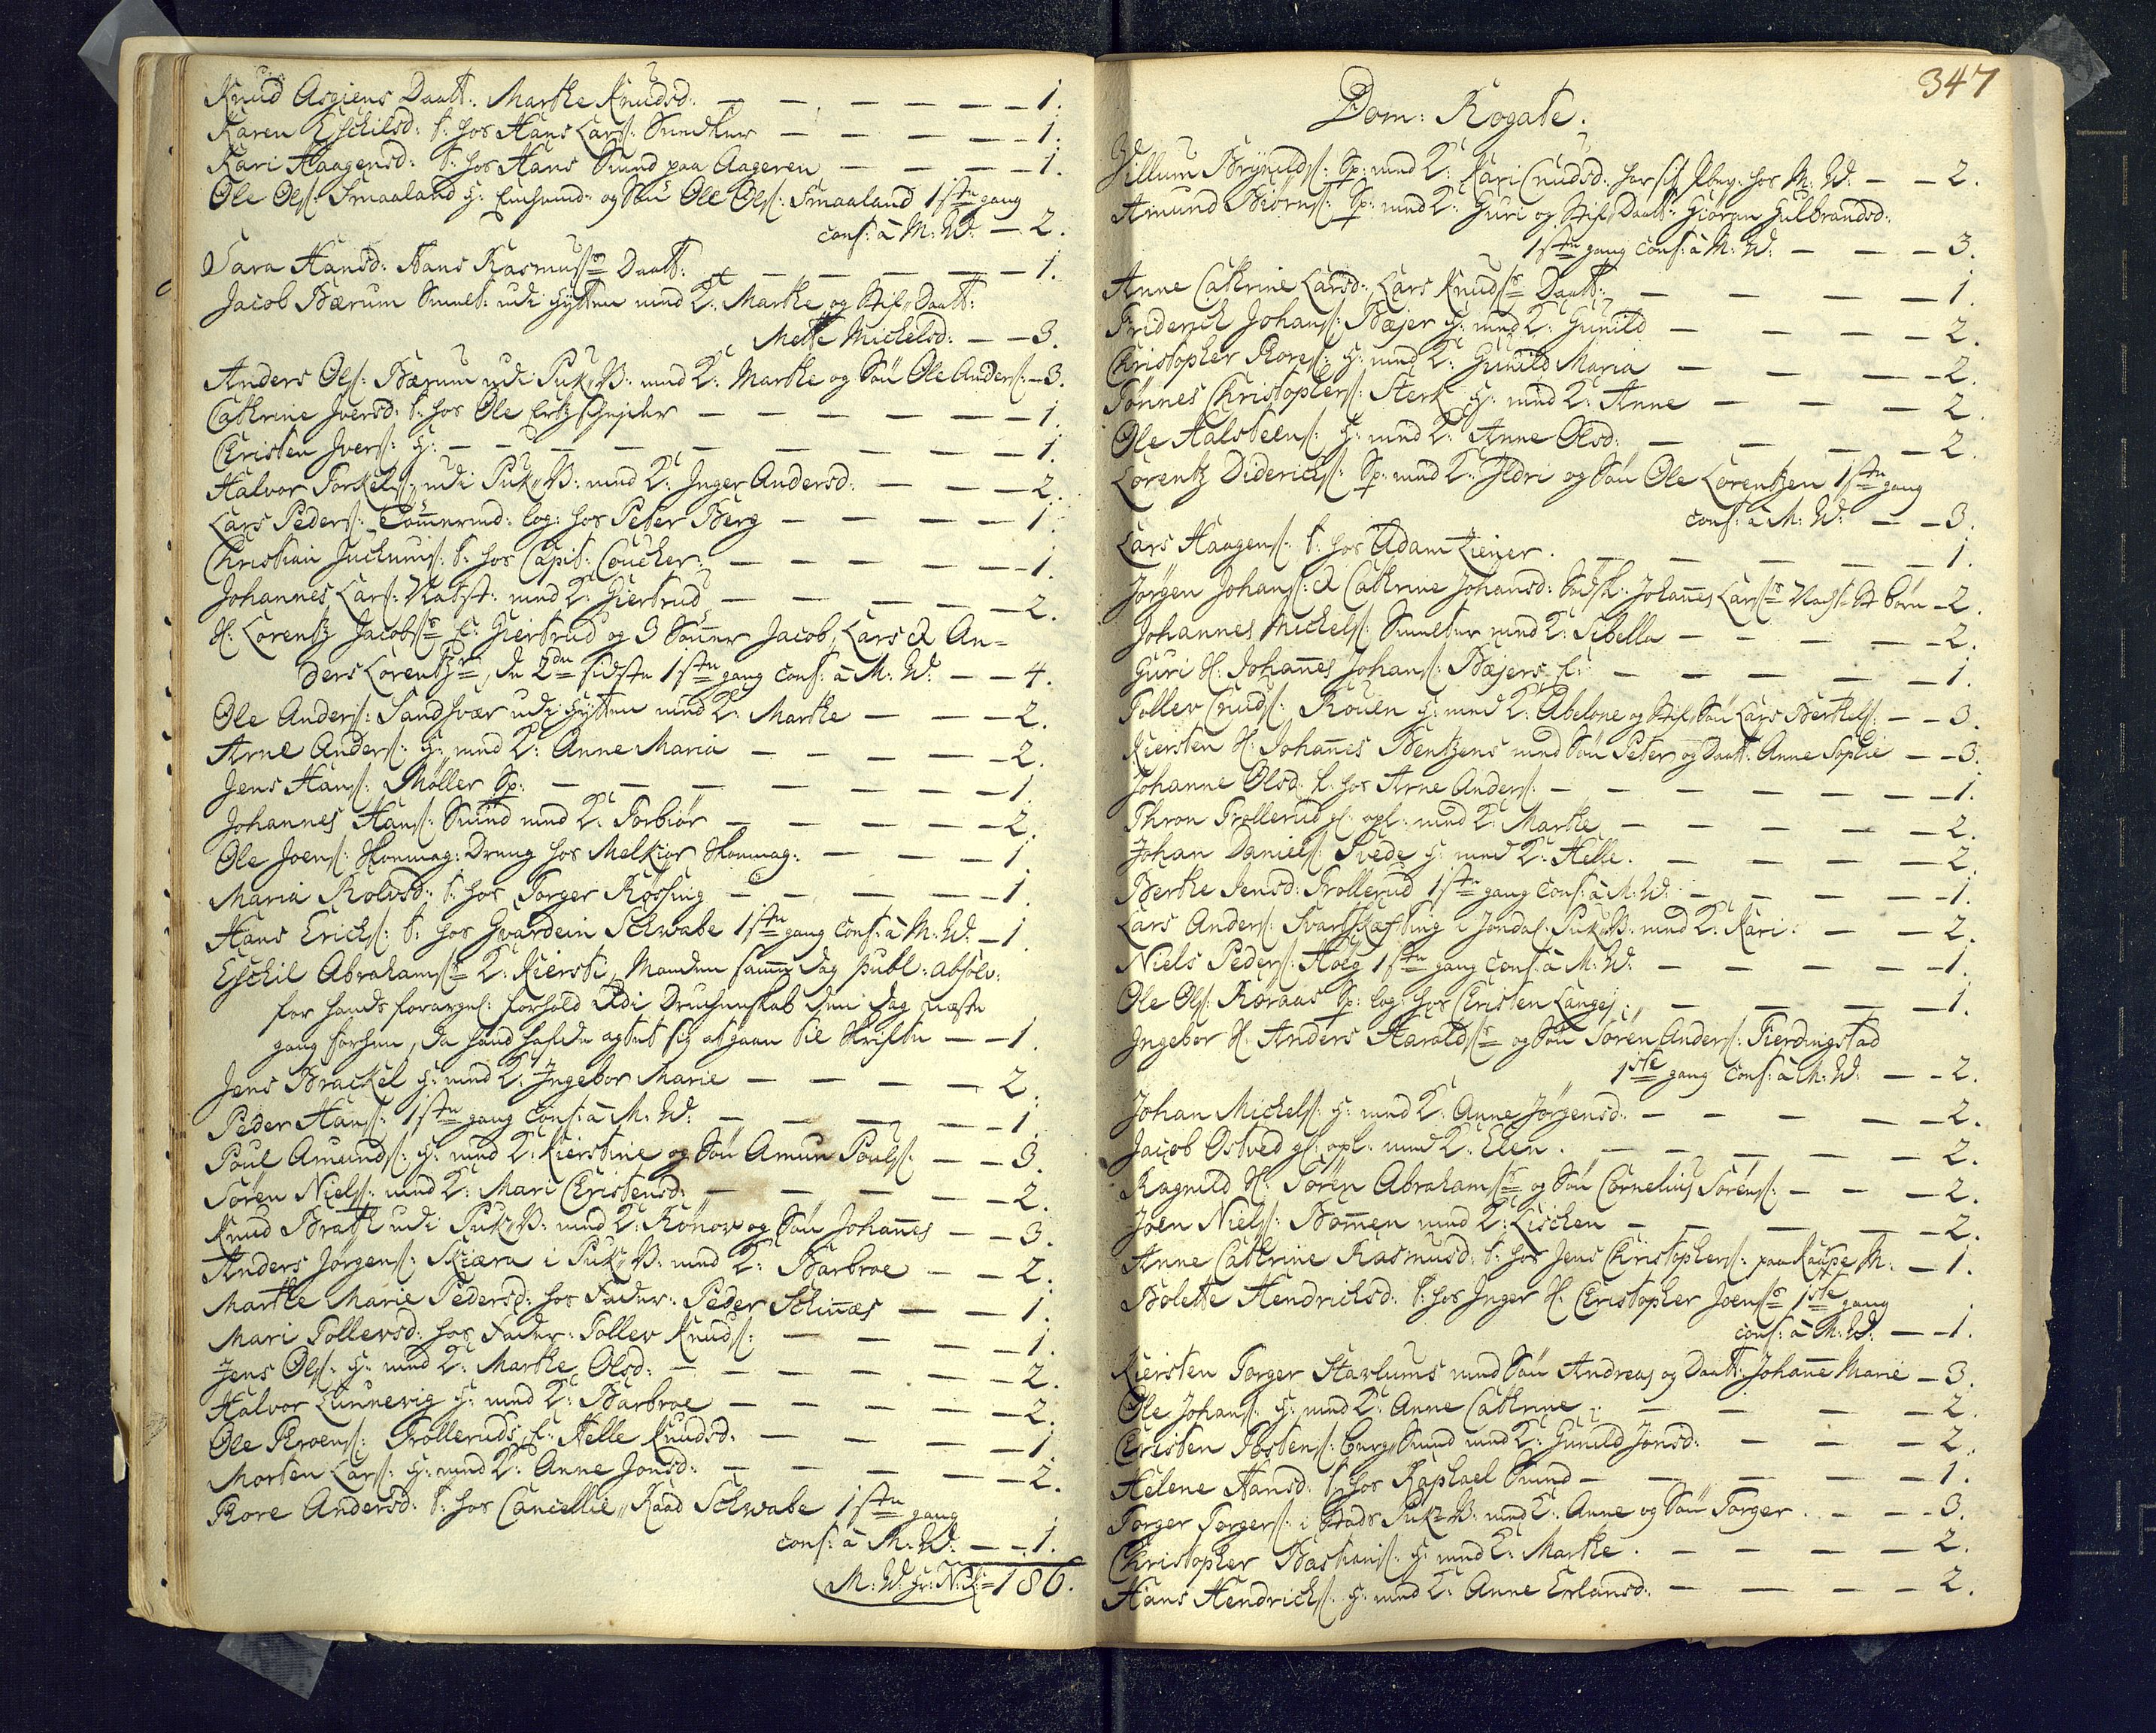 Knud Asgiens Daatt: Marthe Knudsd: — — — — — — 1.
Karen Eschilsd: t: hos Hans Lars: Snedker — — — — — 1.
Kari Haagensd: t: hos Hans Smed paa Aageren — — — 1.
Ole Ols: Smaaland og Søn Ole Ols: Smaaland 1ste gang
conf: â M: W: — 2.
Sara Hansd: Hans Rasmuss Daatt: — — — — — 1.
Jacob Bærum Smelt: udi Hytten med K: Marthe og Stif Daatt:
Mette Michelsd: — — 3.
Anders Ols: Bærum udi Puk V: med K: Marthe og Søn Ole Anders: — 3.
Cathrine Iversd: t: hos Ole Ertzschejder — — — — — 1.
Christen Ivers: H: — — — — — — — 1.
Halvor Torkels: udi Puk V: med K: Inger Andersd: — — — 2.
Lars Peders: Tømermd: log: hos Peter Berg — — — — 1.
Christian t: hos Capit: Coucher: — — — — — 1.
Johannes Lars: Natst: med K: Giertrud — — — — — 2.
H: Lorentz Jacobss E: Giertrud og 3 Sønner Jacob, Lars & An-
ders Lorentzs, de 2de sidste 1ste gang conf: â M: W: — — 4.
Ole Anders: Sandsvær udi Hytten med K: Marthe — — — 2.
Arne Anders: H: med K: Anne Maria — — — — 2.
Jens Hans: Møller Sp: — — — — — — 1.
Johannes Hans: Smed med K: Torbiør — — — — — 2.
Ole Joens: Skomag: Dreng hos Melkior Skomag: — — — 1.
Maria Rolvsd: t: hos Torger Kossing — — — — — 1.
Hans Erichs: t: hos Gvardein Schwabe 1ste gang conf: â M: W: — 1.
Eschil Abrahams K: Kiersti, Manden samme dag publ: absolv:
for hands forargel: forhold udi Druchenskab den dag næste
gang forhen, da hand hafde agtet sig at gaae til Skrifte — — 1.
Jens Brackel H: med K: Ingebor Marie — — — — 2.
Peder Hans: 1ste gang conf: â M: W: — — — — 1.
Poul Amunds: H: med K: Kierstine og Søn Amun Pouls: — — 3.
Søren Niels: med K: Mari Christensd: — — — — 2.
Knud Brath udi Puk V: med K: Rønow og Søn Johannes — — 3.
Anders Jørgens: Skiæra i Puk V: med K: Barbroe — — 2.
Marthe Marie Pedersd: hos Fader: Peder Schinnæs — — 1.
Mari Tollevsd: hos Fader: Tollev Knuds: — — — 1.
Jens Ols: H: med K: Marthe Olsd: — — — — 2.
Halvor Lunnevig H: med K: Barbroe — — — — — 2.
Ole Throens: Trolleruds E: Helle Knudsd: — — — — 1.
Morten Lars: H: med K: Anne Jonsd: — — — — 2.
Thore Andersd: t: hos Cancellie Raad Schwabe 1ste gang
conf: â M: W: — — 1.
M: W: = 186.
347
Dom: Rogate.
Willum Brynilds: Sp: med K: Kari Cnudsd: hos M: W: — — 2.
Amund Biørns: Sp: med K: Guri og Stif Daatt: Gioran Gulbrandsd:
1ste gang conf: â M: W: — — — 3.
Anne Cathrine Larsd: Lars Knuds Daatt: — — — — 1.
Friderich Johans: Bæjer H: med K: Gunild — — — — 2.
Christopher Thores: H: med K: Gunild Maria — — — — 2.
Tønnes Christophers: Sterk H: med K: Anne — — — 2.
Ole Aalsteens: H: med K: Anne Olsd: — — — — 2.
Lorentz Diderichs: Sp: med K: Ildri og Søn Ole Lorentzen 1ste gang
conf: â M: W: — — 3.
Lars Haagens: t: hos Adam Ziener. — — — — 1.
Jørgen Johans: & Cathrine Johansd: Johanes Larss Natst: St børn — 2.
Johannes Michels: Smelter med K: Sibella — — — — 2.
Guri H: Johanes Johans: Bæjers E: — — — — — 1.
Tollev Cnuds: Rouen H: med K: Abelone og Stif Søn Lars Berthels: — — 3.
Kiersten H: Johanes Bentzens med Søn Peter og Daatt: Anne Sophie — — 3.
Johanne Olsd: t: hos Arne Anders: — — — — — — 1.
Thron Trollerud gl: opl: med K: Marthe — — — — 2.
Johan Daniels: Svede H: med K: Helle. — — — — 2.
Berthe Jensd: Trollerud 1ste gang conf: â M: W: — — — — 1.
Lars Anders: Svartskæfting i Jondal: Puk V: med K: Kari: — — 2.
Niels Peders: Hoeg 1ste gang conf: â M: W: — — — — 1.
Ole Ols: Røraas Sp: log: hos Christen Langes: — — — — 1.
Ingebor H: Anders Haralds og Søn Søren Anders: Fierdingstad
1ste gang conf: â M: W: — — 2.
Johan Michels: H: med K: Anne Jørgensd: — — — — 2.
Jacob Ostved gl: opl: med K: Elen. — — — — 2.
Ragnild H: Søren Abrahams og Søn Cornelius Sørens: — — — 2.
Joen Niels: Bommen med K: Lischen — — — — 2.
Anne Cathrine Rasmusd: t: hos Jens Christophers: paa Raupe M: — 1.
Bolette Hendrichsd: t: hos Inger H: Christopher Joens 1ste gang
conf: â M: W: — — 1.
Kiersten Torger Stavlums med Søn Andreas og Daatt: Johanne Marie — 3.
Ole Johans: H: med K: Anne Cathrine: — — — — 2.
Christen Tostens: Berg Smed med K: Gunild Jonsd: — — — 2.
Helene Hansd: t: hos Raphael Smed — — — — — 1.
Torger Torgers: i Stads Puk V: med K: Anne og Søn Torger. — — 3.
Christopher Bastians: H: med K: Marthe. — — — — 2.
Hans Hendrichs: H: med K: Anne Erlandsd: — — — — 2.